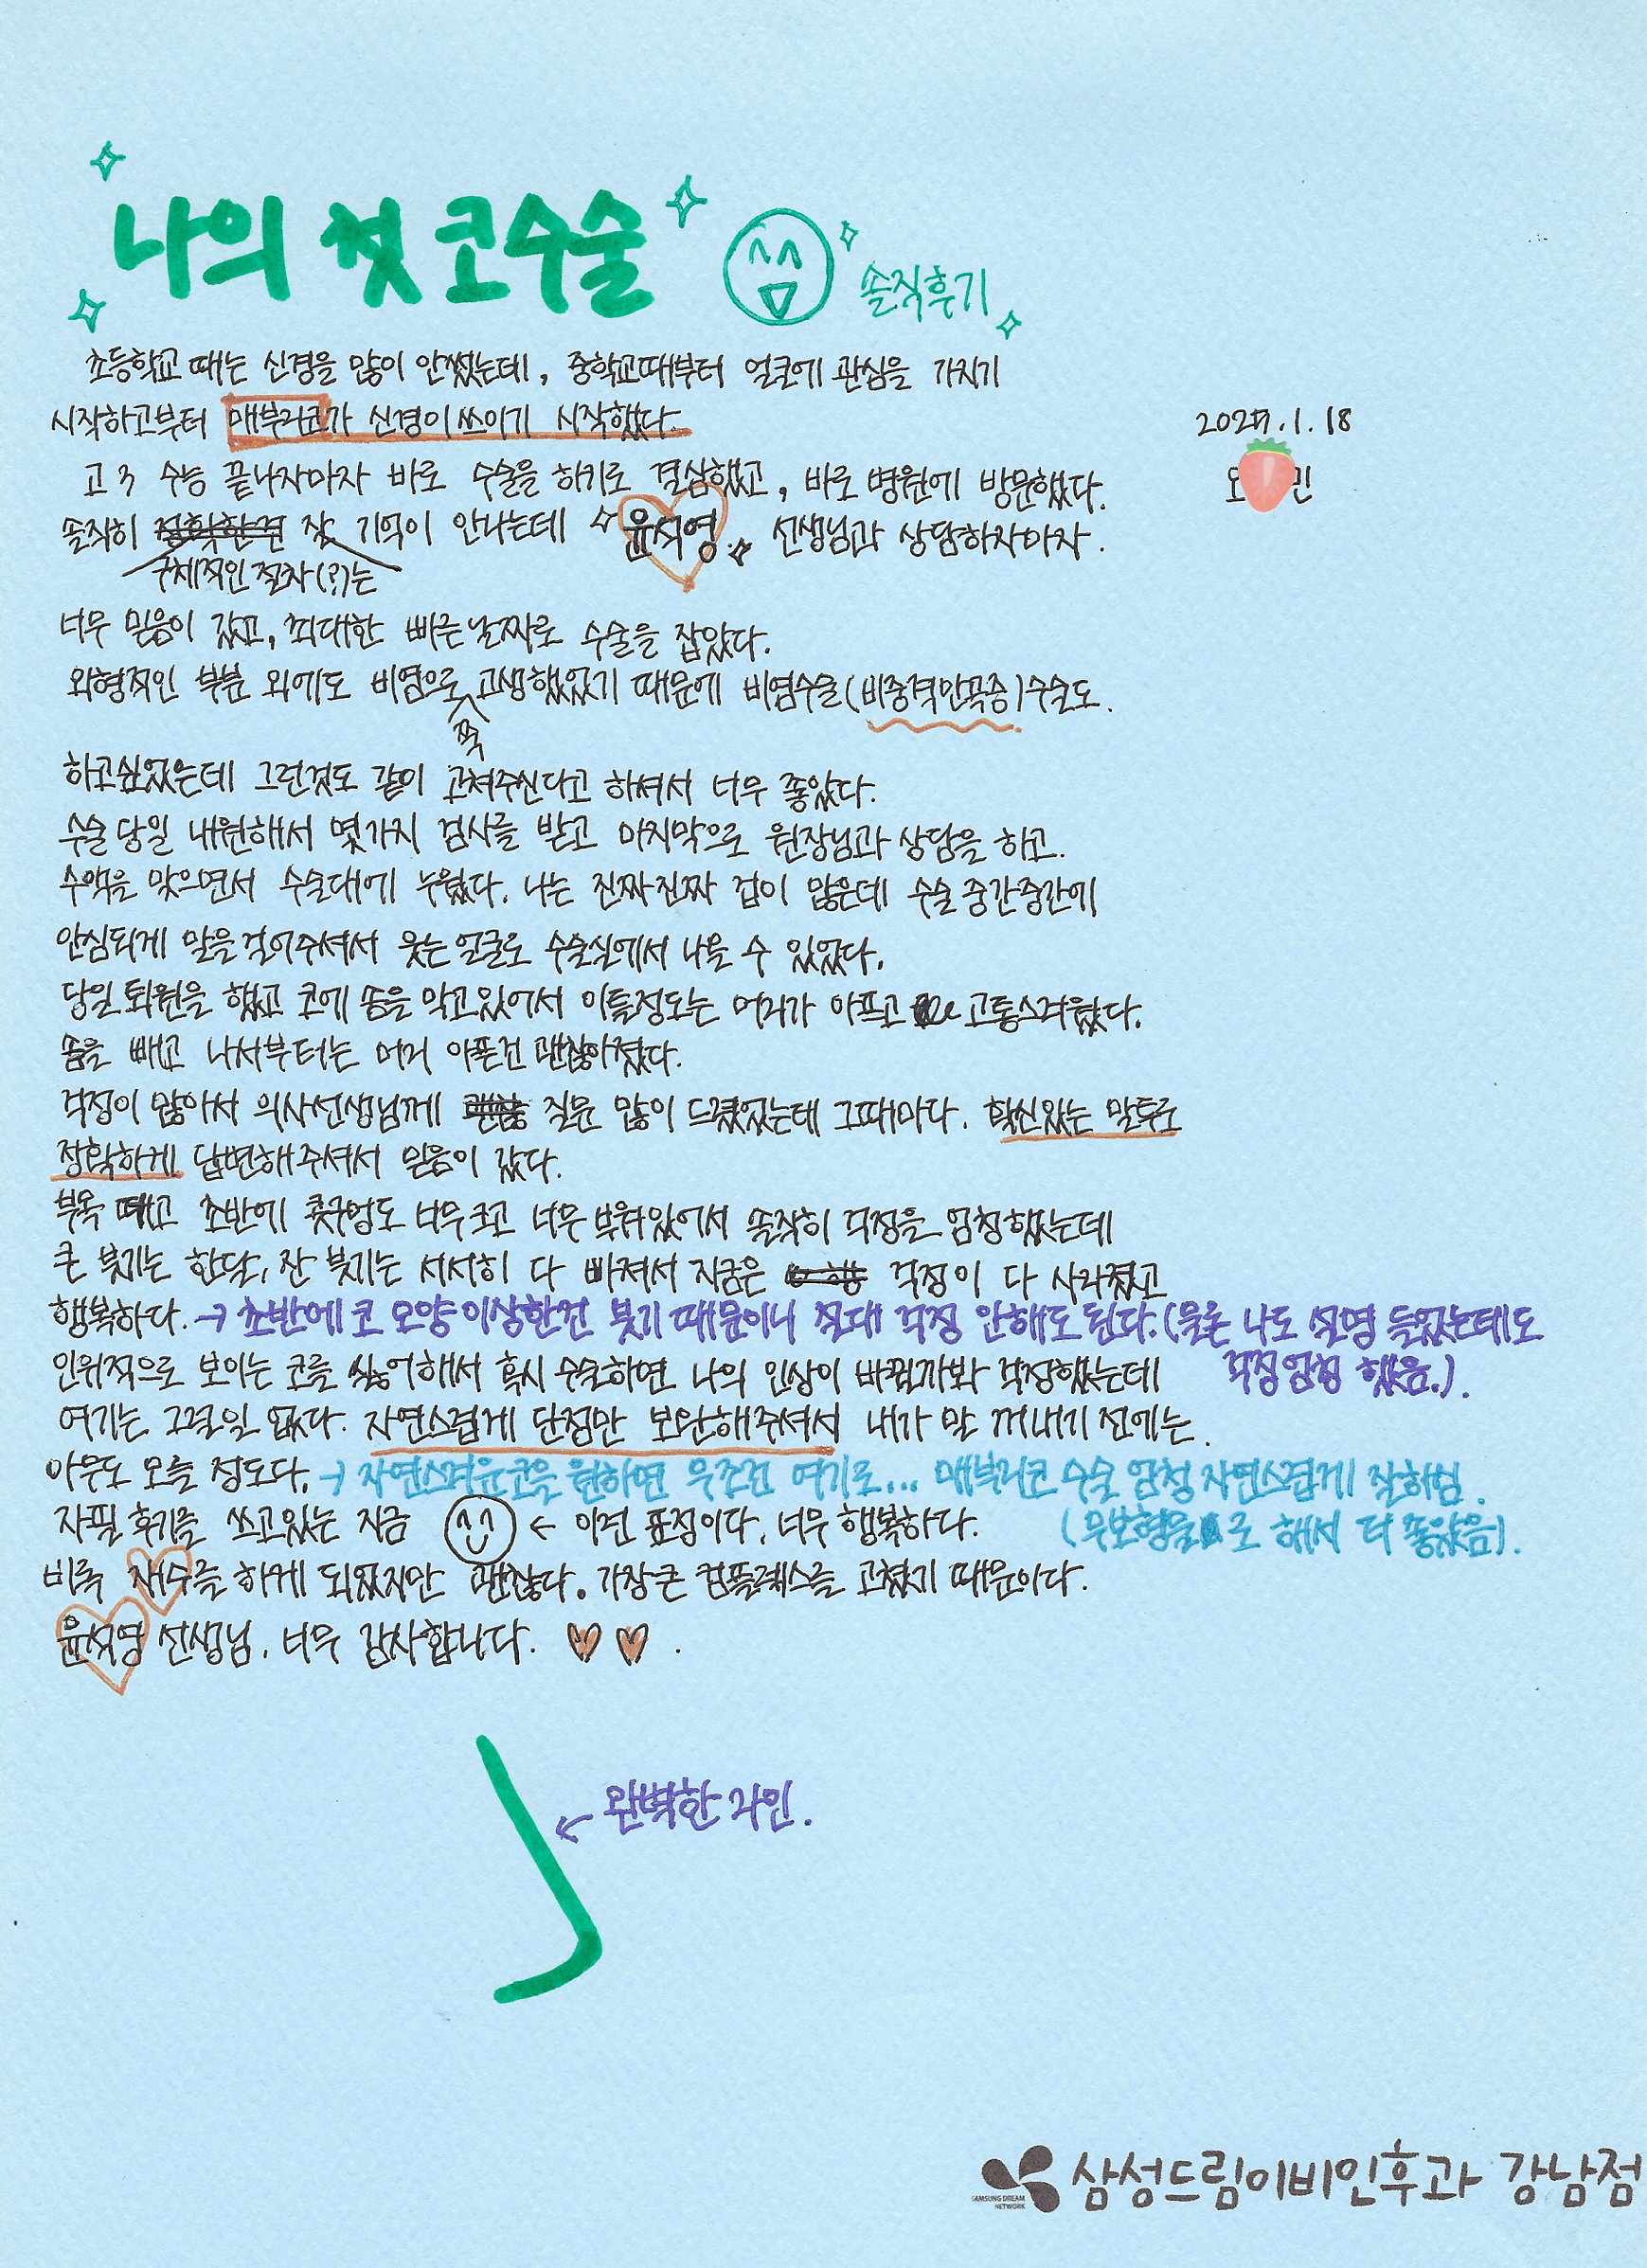 나의 첫 코수술
솔직후기
초등학교 때는 신경을 많이 안썼는데, 중학교때부터 얼굴에 관심을 가지기
시작하고부터 매부리코가 신경이쓰이기 시작했다.
.1.18
고3 수능 끝나자마자 바로 수술을 하기로 결심했고, 바로 병원에 방문했다.
오 민
솔직히 잘 기억이 안나는데 윤석영 선생님과 상담하자마자.
구체적인 절차(?)는
너무 믿음이 갔고, 최대한 빠른날짜로 수술을 잡았다.
외형적인 부분 외에도 비염으로 고생했었기 때문에 비염수술(비중격만곡증)수술도.
쭉
하고싶었는데 그런것도 같이 고쳐주신다고 하셔서 너무 좋았다.
수술당일 내원해서 몇가지 검사를 받고 마지막으로 원장님과 상담을 하고.
수액을 맞으면서 수술대에 누웠다. 나는 진짜진짜 겁이 많은데 수술 중간중간에
안심되게 말을걸어주셔서 웃는얼굴로 수술실에서 나올 수 있었다.
당일퇴원을 했고 코에 솜을 막고있어서 이틀정도는 머리가 아프고 고통스러웠다.
솜을 빼고 나서부터는 머리 아픈건 괜찮아졌다.
걱정이 많아서 의사선생님께 질문 많이 드렸었는데 그때마다. 확신있는 말투로
정확하게 답변해주셔서 믿음이 갔다.
부목 떼고 초반에 콧구멍도 너무크고 너무 부워있어서 솔직히 걱정을 엄청했었는데
큰 붓기는 한달, 잔 붓기는 서서히 다 빠져서 지금은 걱정이 다 사라졌고
행복하다. → 초반에 코 모양이상한건 붓기 때문이니 절대 걱정 안해도 된다.(물론 나도 설명 들었는데도
인위적으로 보이는 코를 싫어해서 혹시 수술하면 나의 인상이 바뀔까봐 걱정했는데 걱정엄청 했음.).
여기는 그럴일 없다. 자연스럽게 단점만 보완해주셔서 내가 말 꺼내기 전에는.
아무도 모를 정도다. → 자연스러운코을 원하면 무조건 여기로... 매부리코 수술 엄청 자연스럽게 잘하심.
자필 후기를 쓰고있는 지금 ← 이런 표정이다. 너무 행복하다. (무보형물로 해서 더 좋았음).
비록 재수를 하게 되었지만 괜찮다. 가장큰 컴플렉스를 고쳤기 때문이다.
윤석영 선생님. 너무 감사합니다.
← 완벽한 라인.
SAMSUNG DREAM
NETWORK
삼성드림이비인후과 강남점